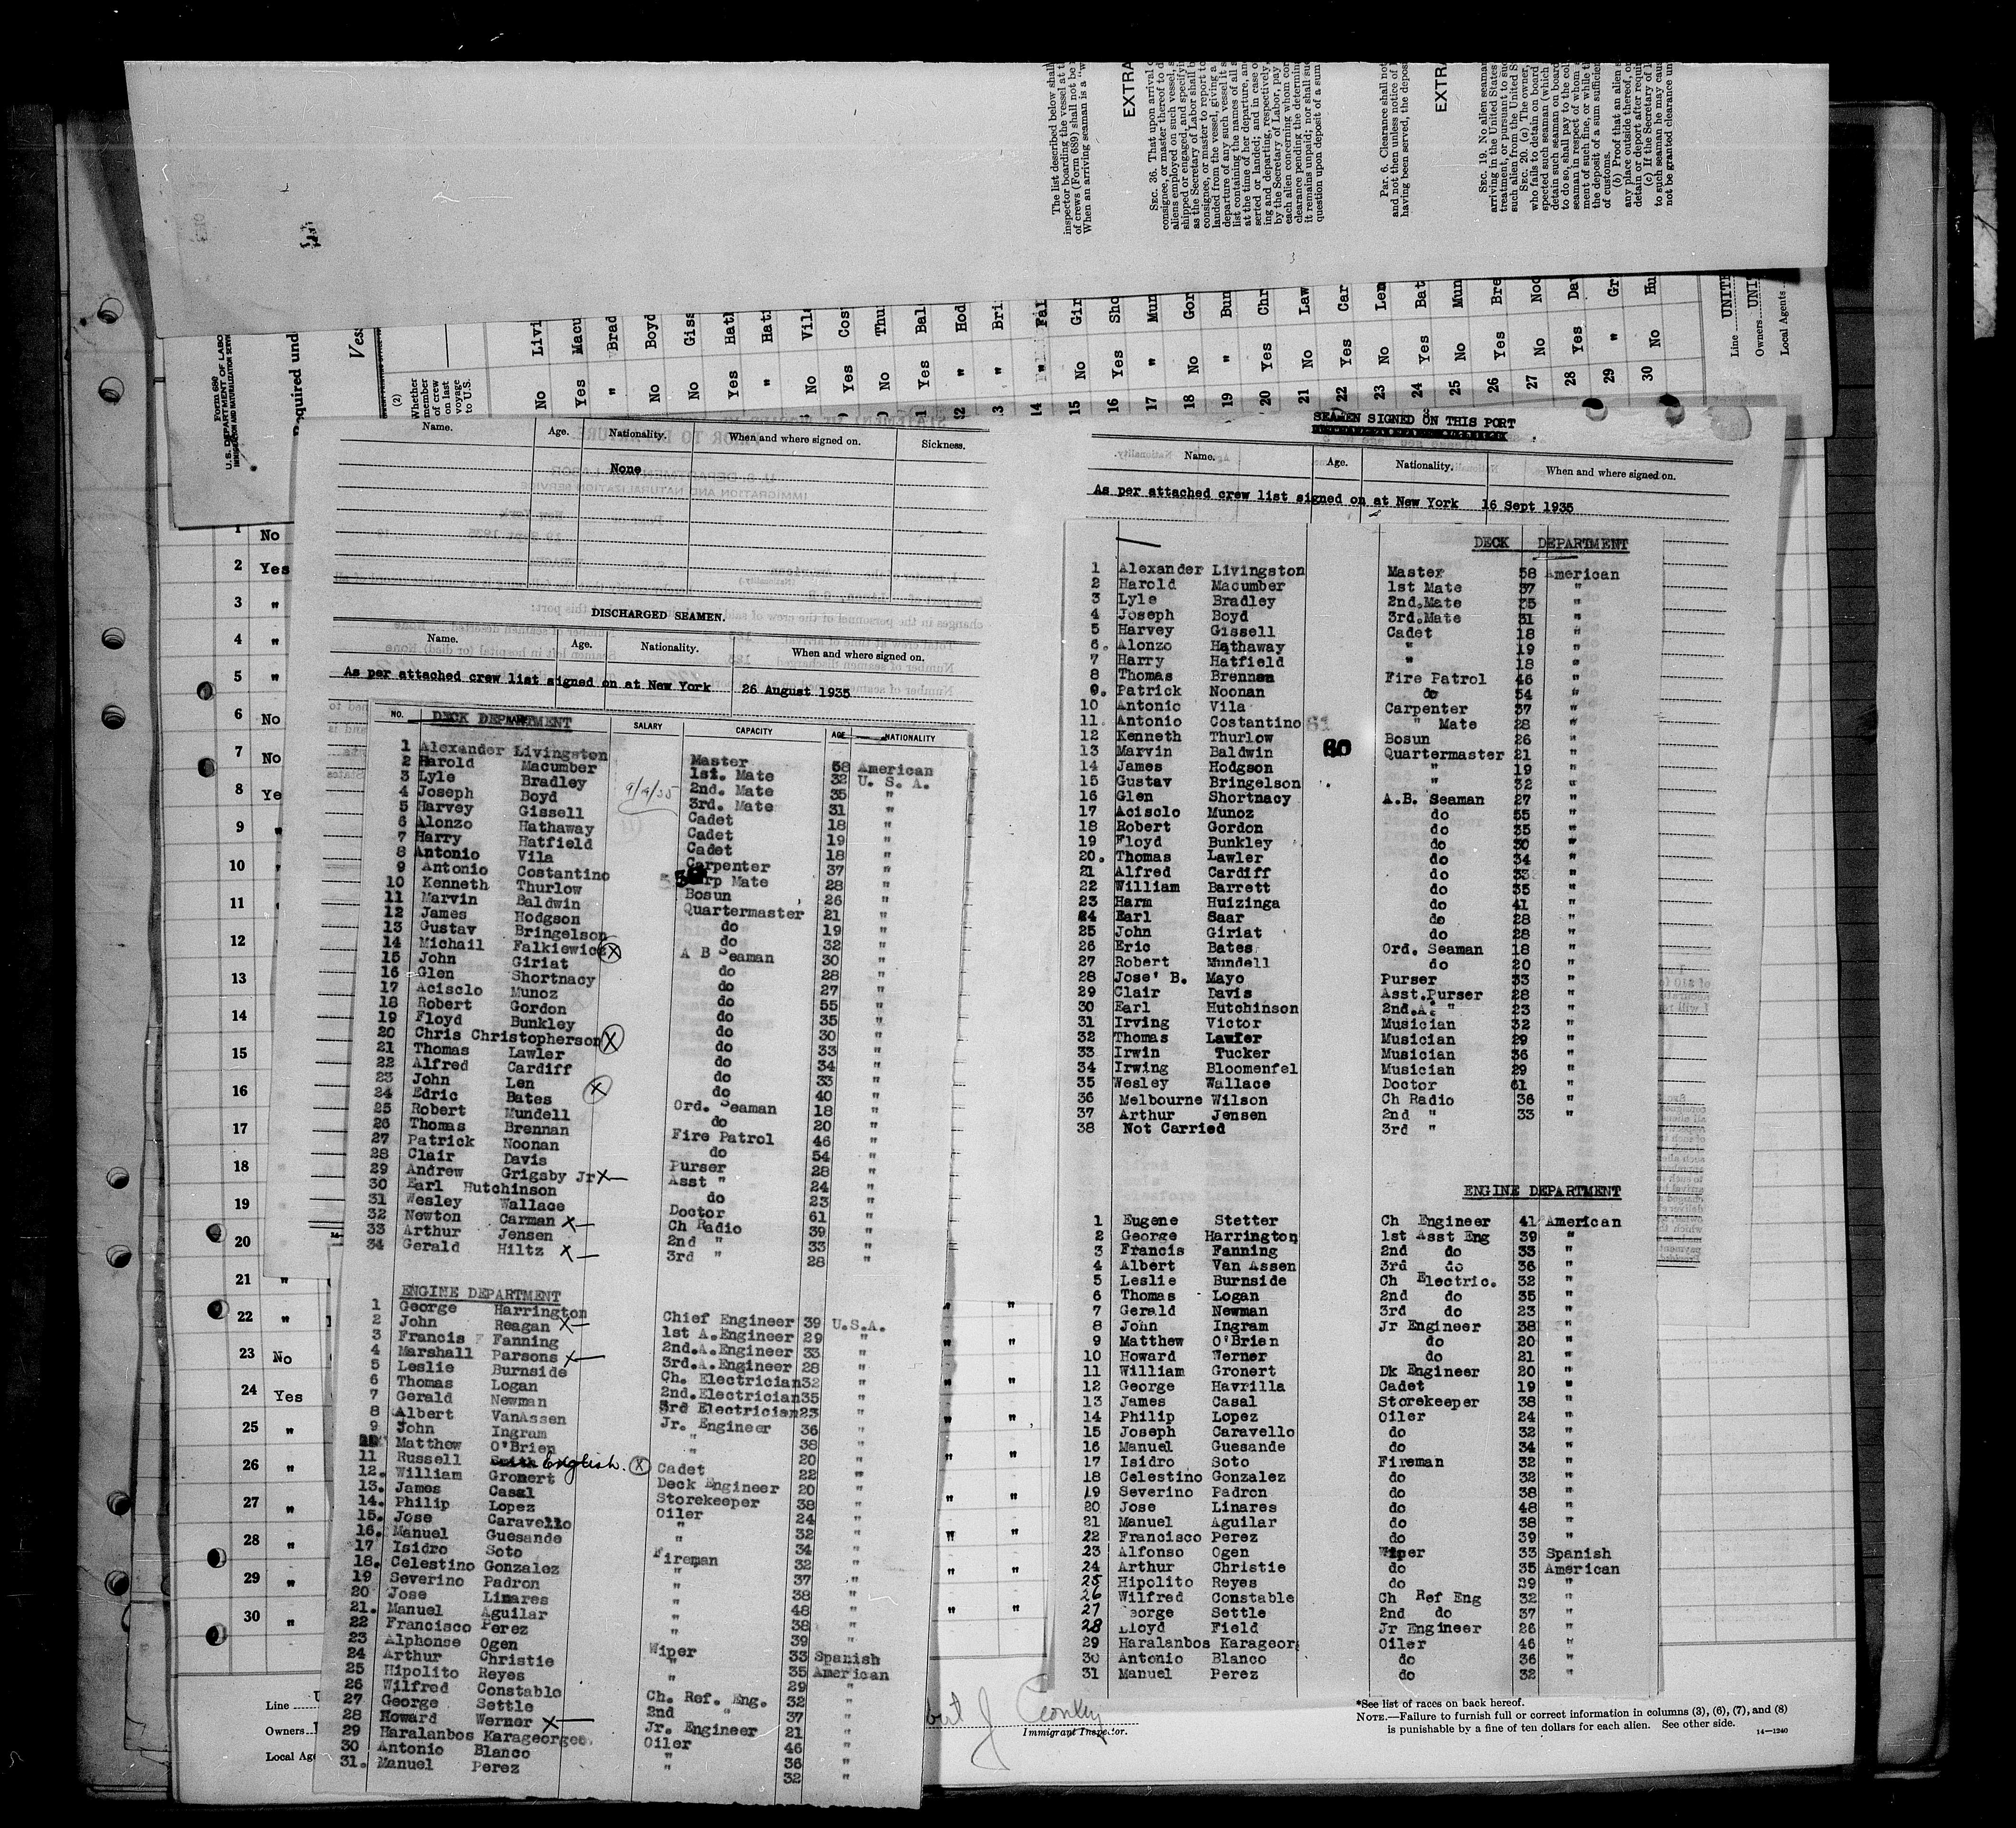 The list described below shall
inspector boarding the vessel at t
of crews (Form 689) shall not be
When an arriving seaman is a "w
EXTRA
SEC. 36. That upon arrival o
consignee, or master thereof to d
aliens employed on such vessel, s
shipped or engaged, and specifyi
as the Secretary of Labor shall b
consignee, or master to report to
landed from the vessel, giving a
departure of any such vessel it s
list containing the names of all
at the time of her departure, an
serted or landed; and in case o
ing and departing, respectively,
by the Secretary of Labor, pay
each alien concerning whom cor
clearance pending the determin
it remains unpaid; nor shall su
question upon deposit of a sum
Par. 6. Clearance shall not
and not then unless notice of
having been served, the depos
EXTRA
SEC. 19. No alien seaman
arriving in the United States
treatment, or pursuant to suc
such alien from the United S
SEC. 20. (a) The owner,
who fails to detain on board
spected such seaman (which
detain such seaman on board
to do so, shall pay to the col
seaman in respect of whom
ment of such fine, or while t
the deposit of a sum sufficien
of customs.
(b) Proof that an alien s
any place outside thereof, or
detain or deport after requi
(c) If the Secretary of l
to such seaman he may caus
not be granted clearance un
Form 680
U.S. DEPARTMENT OF LABO
IMMIGRATION AND NATURALIZATION SERVI
Required und
Vess
(2)
Whether
member
of crew
on last
voyage
to U.S.
No Livi
Yes Macu
" Brad
No Boyd
No Giss
Yes Hath
" Hatf
No Vila
Yes Cos
No Thu
Yes Bal
" Hod
" Bri
14 " Fal
15 No Gir
16 Yes Sho
17 " Mun
18 No Gor
19 " Bun
20 Yes Chr
21 No Law
22 Yes Car
23 No Len
24 Yes Bat
25 No Mun
26 Yes Bre
27 No Noo
28 Yes Dav
29 " Gr
30 No Hu
Line UNITE
Owners UNI
Local Agents
Name. Age. Nationality. When and where signed on. Sickness.
None
DISCHARGED SEAMEN.
Name. Age. Nationality. When and where signed on.
As per attached crew list signed on at New York 26 August 1935
NO. DECK DEPARTMENT SALARY CAPACITY AGE NATIONALITY
1 Alexander Livingston Master 58 American
2 Harold Macumber 1st. Mate 32 U. S. A.
3 Lyle Bradley 2nd. Mate 35 "
4 Joseph Boyd 3rd. Mate 31 "
5 Harvey Gissell Cadet 18 "
6 Alonzo Hathaway Cadet 19 "
7 Harry Hatfield Cadet 18 "
8 Antonio Vila Carpenter 37 "
9 Antonio Costantino Carp Mate 28 "
10 Kenneth Thurlow Bosun 26 "
11 Marvin Baldwin Quartermaster 21 "
12 James Hodgson do 19 "
13 Gustav Bringelson do 32 "
14 Michail Falkiewicz X A B Seaman 30 "
15 John Giriat do 28 "
16 Glen Shortnacy do 27 "
17 Acisclo Munoz do 55 "
18 Robert Gordon do 35 "
19 Floyd Bunkley do 30 "
20 Chris Christopherson X do 33 "
21 Thomas Lawler do 34 "
22 Alfred Cardiff do 33 "
23 John Len X do 40 "
24 Edric Bates Ord. Seaman 18 "
25 Robert Mundell do 20 "
26 Thomas Brennan Fire Patrol 46 "
27 Patrick Noonan do 54 "
28 Clair Davis Purser 28 "
29 Andrew Grigsby Jr X Asst " 24 "
30 Earl Hutchinson do 23 "
31 Wesley Wallace Doctor 61 "
32 Newton Carman X Ch Radio 39 "
33 Arthur Jensen 2nd " 33 "
34 Gerald Hiltz X 3rd " 28 "
ENGINE DEPARTMENT
1 George Harrington Chief Engineer 39 U.S.A.
2 John Reagan X 1st A.Engineer 29 "
3 Francis F Fanning 2nd.A.Engineer 33 "
4 Marshall Parsons X 3rd.A.Engineer 28 "
5 Leslie Burnside Ch. Electrician 32 "
6 Thomas Logan 2nd.Electrician 35 "
7 Gerald Newman 3rd Electrician 23 "
8 Albert VanAssen Jr. Engineer 36 "
9 John Ingram " 38 "
Matthew O'Brien " 20 "
11 Russell English. X Cadet 22 "
12. William Gronert Deck Engineer 20 "
13. James Casal Storekeeper 38 "
14. Philip Lopez Oiler 24 "
15. Jose Caravello " 32 "
16. Manuel Guesande " 34 "
17 Isidro Soto Fireman 32 "
18. Celestino Gonzalez " 37 "
19 Severino Padron " 38 "
20 Jose Linares " 48 "
21. Manuel Aguilar " 38 "
22 Francisco Perez " 39 "
23 Alphonse Ogen Wiper 33 Spanish
24 Arthur Christie " 35 American
25 Hipolito Reyes " 29 "
26 Wilfred Constable Ch. Ref. Eng. 32 "
27 George Settle 2nd " 37 "
28 Howard Werner X Jr. Engineer 21 "
29 Haralanbos Karageorgeo Oiler 46 "
30 Antonio Blanco " 36 "
31. Manuel Perez " 32 "
SEAMEN SIGNED ON THIS PORT
Name. Age. Nationality. When and where signed on.
As per attached crew list signed on at New York 16 Sept 1935
DECK DEPARTMENT
1 Alexander Livingston Master 58 American
2 Harold Macumber 1st Mate 37 "
3 Lyle Bradley 2nd.Mate 35 "
4 Joseph Boyd 3rd.Mate 31 "
5 Harvey Gissell Cadet 18 "
6. Alonzo Hathaway " 19 "
7 Harry Hatfield " 18 "
8 Thomas Brennan Fire Patrol 46 "
9. Patrick Noonan do 54 "
10 Antonio Vila Carpenter 37 "
11. Antonio Costantino " Mate 28 "
12 Kenneth Thurlow Bosun 26 "
13 Marvin Baldwin 60 Quartermaster 21 "
14 James Hodgson " 19 "
15 Gustav Bringelson " 32 "
16 Glen Shortnacy A.B. Seaman 27 "
17 Acisclo Munoz do 55 "
18 Robert Gordon do 35 "
19 Floyd Bunkley do 30 "
20. Thomas Lawler do 34 "
21 Alfred Cardiff do 33 "
22 William Barrett do 35 "
23 Harm Huizinga do 41 "
24 Earl Saar do 28 "
25 John Giriat do 28 "
26 Eric Bates Ord. Seaman 18 "
27 Robert Mundell do 20 "
28 Jose' B. Mayo Purser 33 "
29 Clair Davis Asst.Purser 28 "
30 Earl Hutchinson 2nd.A. " 23 "
31 Irving Victor Musician 32 "
32 Thomas Lawfer Musician 29 "
33 Irwin Tucker Musician 36 "
34 Irwing Bloomenfel Musician 29 "
35 Wesley Wallace Doctor 61 "
36 Melbourne Wilson Ch Radio 36 "
37 Arthur Jensen 2nd " 33 "
38 Not Carried 3rd "
ENGINE DEPARTMENT
1 Eugene Stetter Ch Engineer 41 American
2 George Harrington 1st Asst Eng 39 "
3 Francis Fanning 2nd do 33 "
4 Albert Van Assen 3rd do 36 "
5 Leslie Burnside Ch Electric. 32 "
6 Thomas Logan 2nd do 35 "
7 Gerald Newman 3rd do 23 "
8 John Ingram Jr Engineer 38 "
9 Matthew O'Brien do 20 "
10 Howard Werner do 21 "
11 William Gronert Dk Engineer 20 "
12 George Havrilla Cadet 19 "
13 James Casal Storekeeper 38 "
14 Philip Lopez Oiler 24 "
15 Joseph Caravello do 32 "
16 Manuel Guesande do 34 "
17 Isidro Soto Fireman 32 "
18 Celestino Gonzalez do 32 "
19 Severino Padron do 38 "
20 Jose Linares do 48 "
21 Manuel Aguilar do 38 "
22 Francisco Perez do 39 "
23 Alfonso Ogen Wiper 33 Spanish
24 Arthur Christie do 35 American
25 Hipolito Reyes do 29 "
26 Wilfred Constable Ch Ref Eng 32 "
27 eorge Settle 2nd do 37 "
28 Lloyd Field Jr Engineer 26 "
29 Haralanbos Karageor Oiler 46 "
30 Antonio Blanco do 36 "
31 Manuel Perez do 32 "
1 No
2 Yes
3 "
4 "
5 "
6 No
7 No
8 Ye
9
10
11
12
13
14
15
16
17
18
19
20
21 "
22 "
23 No
24 Yes
25 "
26 "
27 "
28 "
29 "
30 "
Line
Owners
Local Age
Immigrant Inspector.
*See list of races on back hereof.
NOTE.—Failure to furnish full or correct information in columns (3), (6), (7), and (8)
is punishable by a fine of ten dollars for each alien. See other side.
14—1240